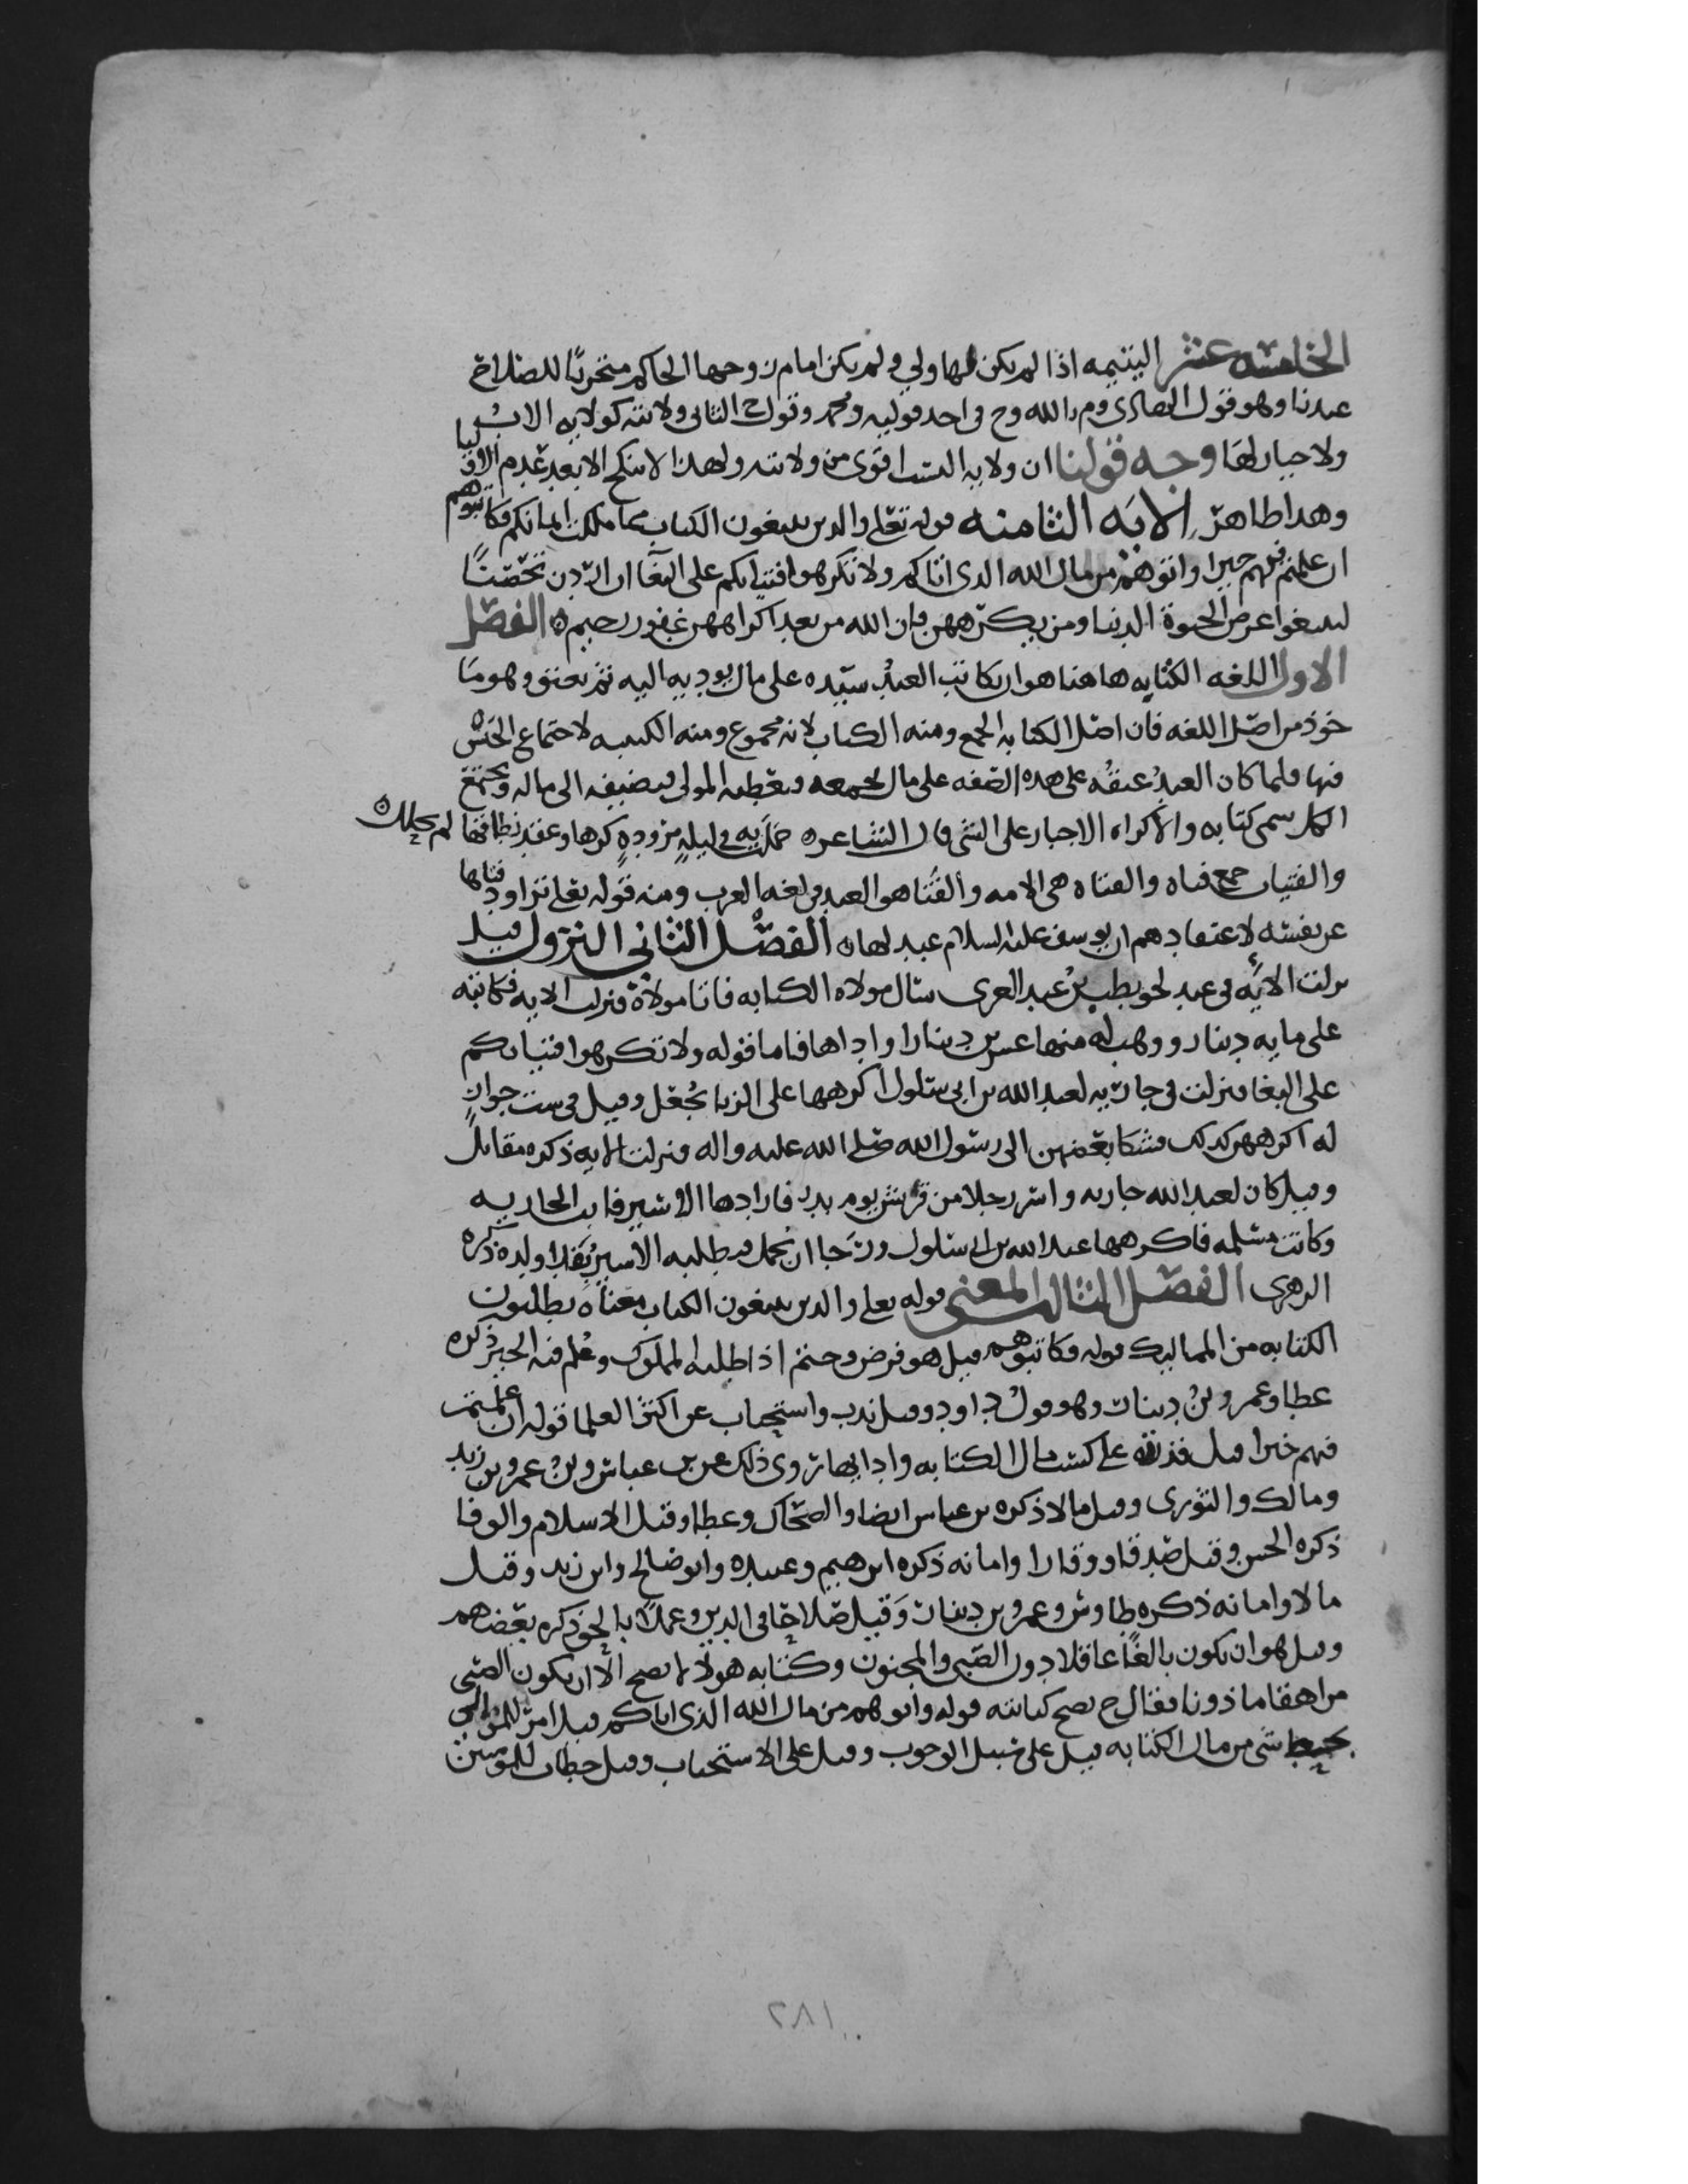 الخامسه عشر اليتيمه اذا لم يكن لها ولي ولم يكن امام زوجها الحاكم متحريًا للصلاح
عندنا وهو قول الهادي وم بالله وح في احد قوليه ومحمد وقول ح الثاني ولايته كولايه الاب
ولا خيار لها وجه قولنا ان ولايه النسب اقوى من ولايته ولهذا لا ينكح الا بعد عدم الاوليا
وهذا ظاهر الايه الثامنه قوله تعالى والذين يبتغون الكتاب مما ملكت ايمانكم فكاتبوهم
ان علمتم فيهم خيرا واتوهم من مال الله الذي اتاكم ولا تكرهوا فتياتكم على البغآ ان اردن تحصنًا
لتبتغوا عرض الحيوة الدنيا ومن يكرههن فان الله من بعد اكراههن غفور رحيم ٥ الفصل
الاول اللغه الكتابه هاهنا هو ان يكاتب العبد سيده على مال يوديه اليه ثم يعتق وهو ما
خوذ من اصل اللغه فان اصل الكتابه الجمع ومنه الكتاب لانه مجموع ومنه الكتيبه لاجتماع الجيش
فيها فلما كان العبد عتقُه على هذه الصفه على مال يجمعه ويعطيه المولى فيضيفه الى ماله ويجتمع
الكل سمي كتابه والاكراه الاجبار على الشي قال الشاعر ٥ حملت به في ليلةٍ مزودةٍ كرها وعقد نطاقها لم يحلل ٥
والفتيات جمع فتاه والفتاه هي الامه والفتا هو العبد في لغه العرب ومنه قوله تعالى تراود فتاها
عن نفسه لاعتقادهم ان يوسف عليه السلام عبد لها ٥ الفصل الثاني النزول قيل
نزلت الايه في عبد لحويطب بن عبد العزى سال مولاه الكتابه فابا مولاه فنزلت الايه فكاتبه
على مايه دينار ووهب له منها عشرين دينارا واداها فاما قوله ولا تكرهوا فتياتكم
على البغا فنزلت في جاريه لعبد الله بن ابي سلول اكرهها على الزنا بجُعل وقيل في ست جوارٍ
له اكرههن كذلك فشكا بعضهن الى رسول الله صلى الله عليه واله فنزلت الايه ذكره مقاتل
وقيل كان لعبد الله جاريه واسر رجلا من قريش يوم بدر فارادها الاسير فابت الجاريه
وكانت مسلمه فاكرهها عبد الله بن ابي سلول ورَجا ان تحمل فيطلب الاسير بفدا ولده ذكره
الزهري الفصل الثالث المعنى قوله تعلى والذين يبتغون الكتاب معناه يطلبون
الكتابه من المماليك قوله فكاتبوهم قيل هو فرض وحتم اذا طلبه المملوك وعُلم فيه الخير ذكره
عطا وعمرو بن دينار وهو قول داود وقيل ندب واستحباب عن اكثر العلما قوله ان علمتم
فيهم خيرا قيل قدره على كسب مال الكتابه وادايها روي ذلك عن بن عباس وبن عمر وبن زيد
ومالك والثوري وقيل مالا ذكره بن عباس ايضا والضحاك وعطا وقيل الاسلام والوفا
ذكره الحسن وقيل صدقا ووقارا وامانه ذكره ابرهيم وعبيده وابو صالح وابن زيد وقيل
مالا وامانه ذكره طاوس وعمرو بن دينار وَقيل صلاحًا في الدين وعملا بالحق ذكره بعضهم
وقيل هو ان يكون بالغًا عاقلا دون الصبي والمجنون وكتابه هولا لا تصح الا ان يكون الصبي
مراهقا ماذونا فقال ح تصح كتابته قوله واتوهم من مال الله الذي اتاكم قيل امر للموالي
بحط شي من مال الكتابه قيل على سبيل الوجوب وقيل على الاستحباب وقيل خطاب للمومنين
٢٨١